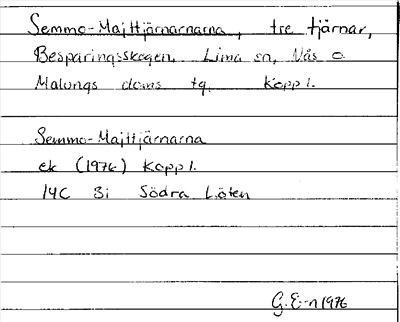 Semmo-Majttjärnarnarna, tre tjärnar,
Besparingsskogen, Lima sn, Nås o
Malungs doms tg, Kopp l.
Semmo-Majttjärnarna
ek (1976) Kopp l.
14C 3i Södra Löten
G.E-n 1976